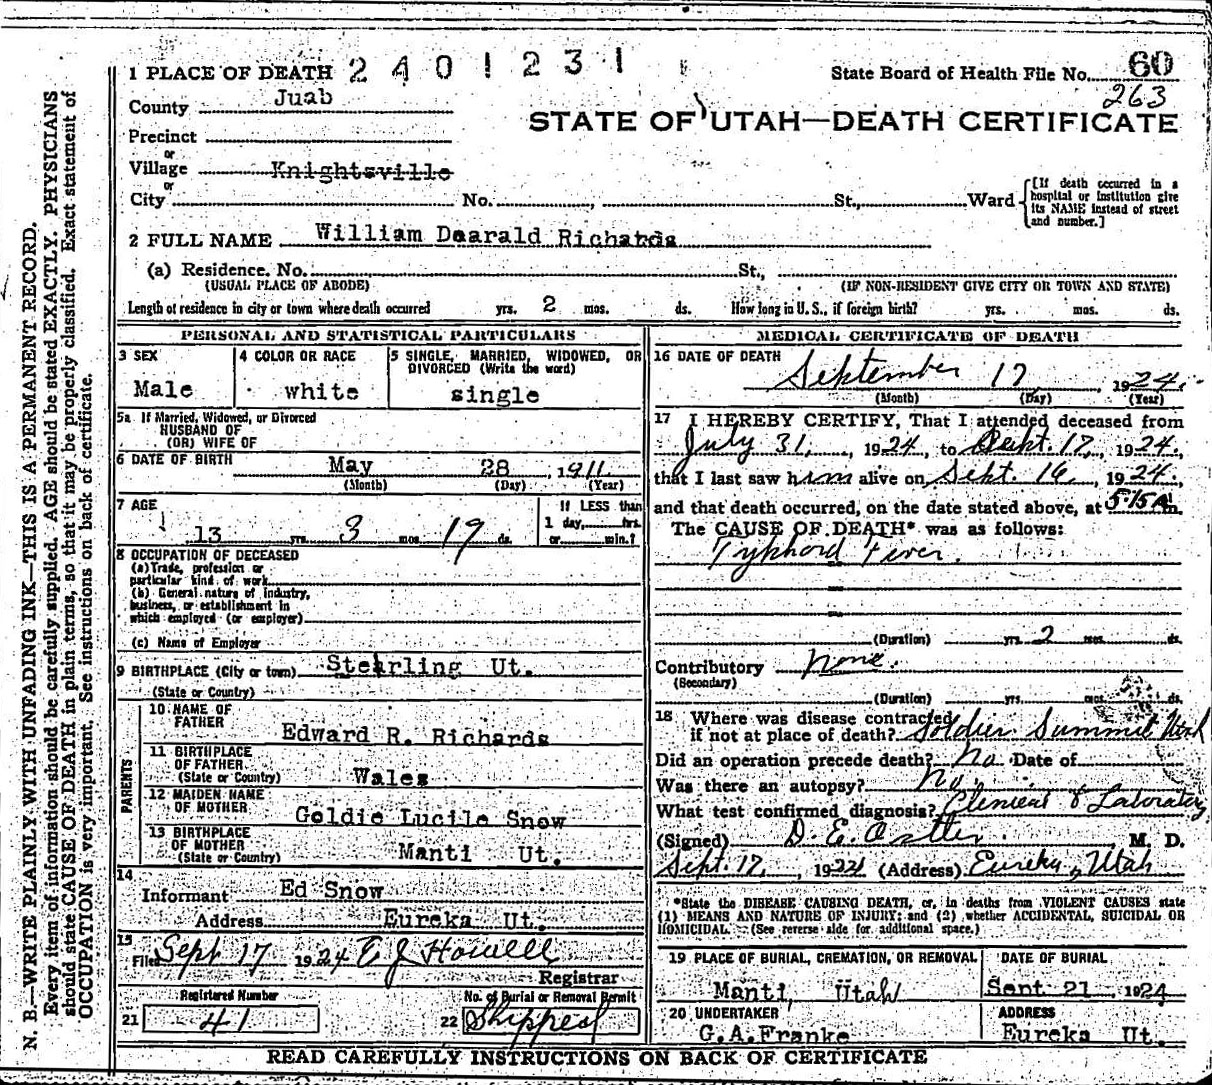 1 PLACE OF DEATH 2 4 0 1 2 3 1
State Board of Health File No. 60
263
County Juab
STATE OF UTAH—DEATH CERTIFICATE
Precinct
or
Village Knightsville
or
City No. , St., Ward
[If death occurred in a hospital or institution give its NAME instead of street and number.]
2 FULL NAME William Dearald Richards
(a) Residence. No. St.,
(USUAL PLACE OF ABODE) (IF NON-RESIDENT GIVE CITY OR TOWN AND STATE)
Length of residence in city or town where death occurred yrs. 2 mos. ds. How long in U. S., if foreign birth? yrs. mos. ds.
PERSONAL AND STATISTICAL PARTICULARS
3 SEX
Male
4 COLOR OR RACE
white
5 SINGLE, MARRIED, WIDOWED, OR
DIVORCED (Write the word)
single
5a If Married, Widowed, or Divorced
HUSBAND OF
(OR) WIFE OF
6 DATE OF BIRTH May 28 , 1911
(Month) (Day) (Year)
7 AGE
13 yrs. 3 mos. 19 ds.
If LESS than
1 day, hrs.
or min.?
8 OCCUPATION OF DECEASED
(a) Trade, profession or
particular kind of work
(b) General nature of industry,
business, or establishment in
which employed (or employer)
(c) Name of Employer
9 BIRTHPLACE (City or town) Stearling Ut.
(State or Country)
PARENTS
10 NAME OF
FATHER
Edward R. Richards
11 BIRTHPLACE
OF FATHER
(State or Country) Wales
12 MAIDEN NAME
OF MOTHER
Goldie Lucile Snow
13 BIRTHPLACE
OF MOTHER
(State or Country) Manti Ut.
14
Informant Ed Snow
Address Eureka Ut.
15
Filed Sept 17 1924 E J Howell
Registrar
Registered Number
21 41
No. of Burial or Removal Permit
22 Shipped
MEDICAL CERTIFICATE OF DEATH
16 DATE OF DEATH
September 17, 1924.
(Month) (Day) (Year)
17 I HEREBY CERTIFY, That I attended deceased from
July 31, 1924, to Sept. 17, 1924.,
that I last saw him alive on Sept. 16, 1924.,
and that death occurred, on the date stated above, at 5:15 A m.
The CAUSE OF DEATH* was as follows:
Typhoid Fever.
(Duration) yrs. 2 mos. ds.
Contributory none.
(Secondary)
(Duration) yrs. mos. ds.
18 Where was disease contracted
if not at place of death? Soldier Summit Utah
Did an operation precede death? No Date of
Was there an autopsy? No.
What test confirmed diagnosis? Clinical & Laboratory
(Signed) D. E. M. D.
Sept. 17, 1924 (Address) Eureka, Utah
*State the DISEASE CAUSING DEATH, or, in deaths from VIOLENT CAUSES state
(1) MEANS AND NATURE OF INJURY; and (2) whether ACCIDENTAL, SUICIDAL OR
HOMICIDAL. (See reverse side for additional space.)
19 PLACE OF BURIAL, CREMATION, OR REMOVAL
Manti, Utah
DATE OF BURIAL
Sept 21, 1924
20 UNDERTAKER
G.A.Franke
ADDRESS
Eureka Ut.
READ CAREFULLY INSTRUCTIONS ON BACK OF CERTIFICATE
N. B.—WRITE PLAINLY WITH UNFADING INK—THIS IS A PERMANENT RECORD.
Every item of information should be carefully supplied. AGE should be stated EXACTLY. PHYSICIANS
should state CAUSE OF DEATH in plain terms, so that it may be properly classified. Exact statement of
OCCUPATION is very important. See instructions on back of certificate.